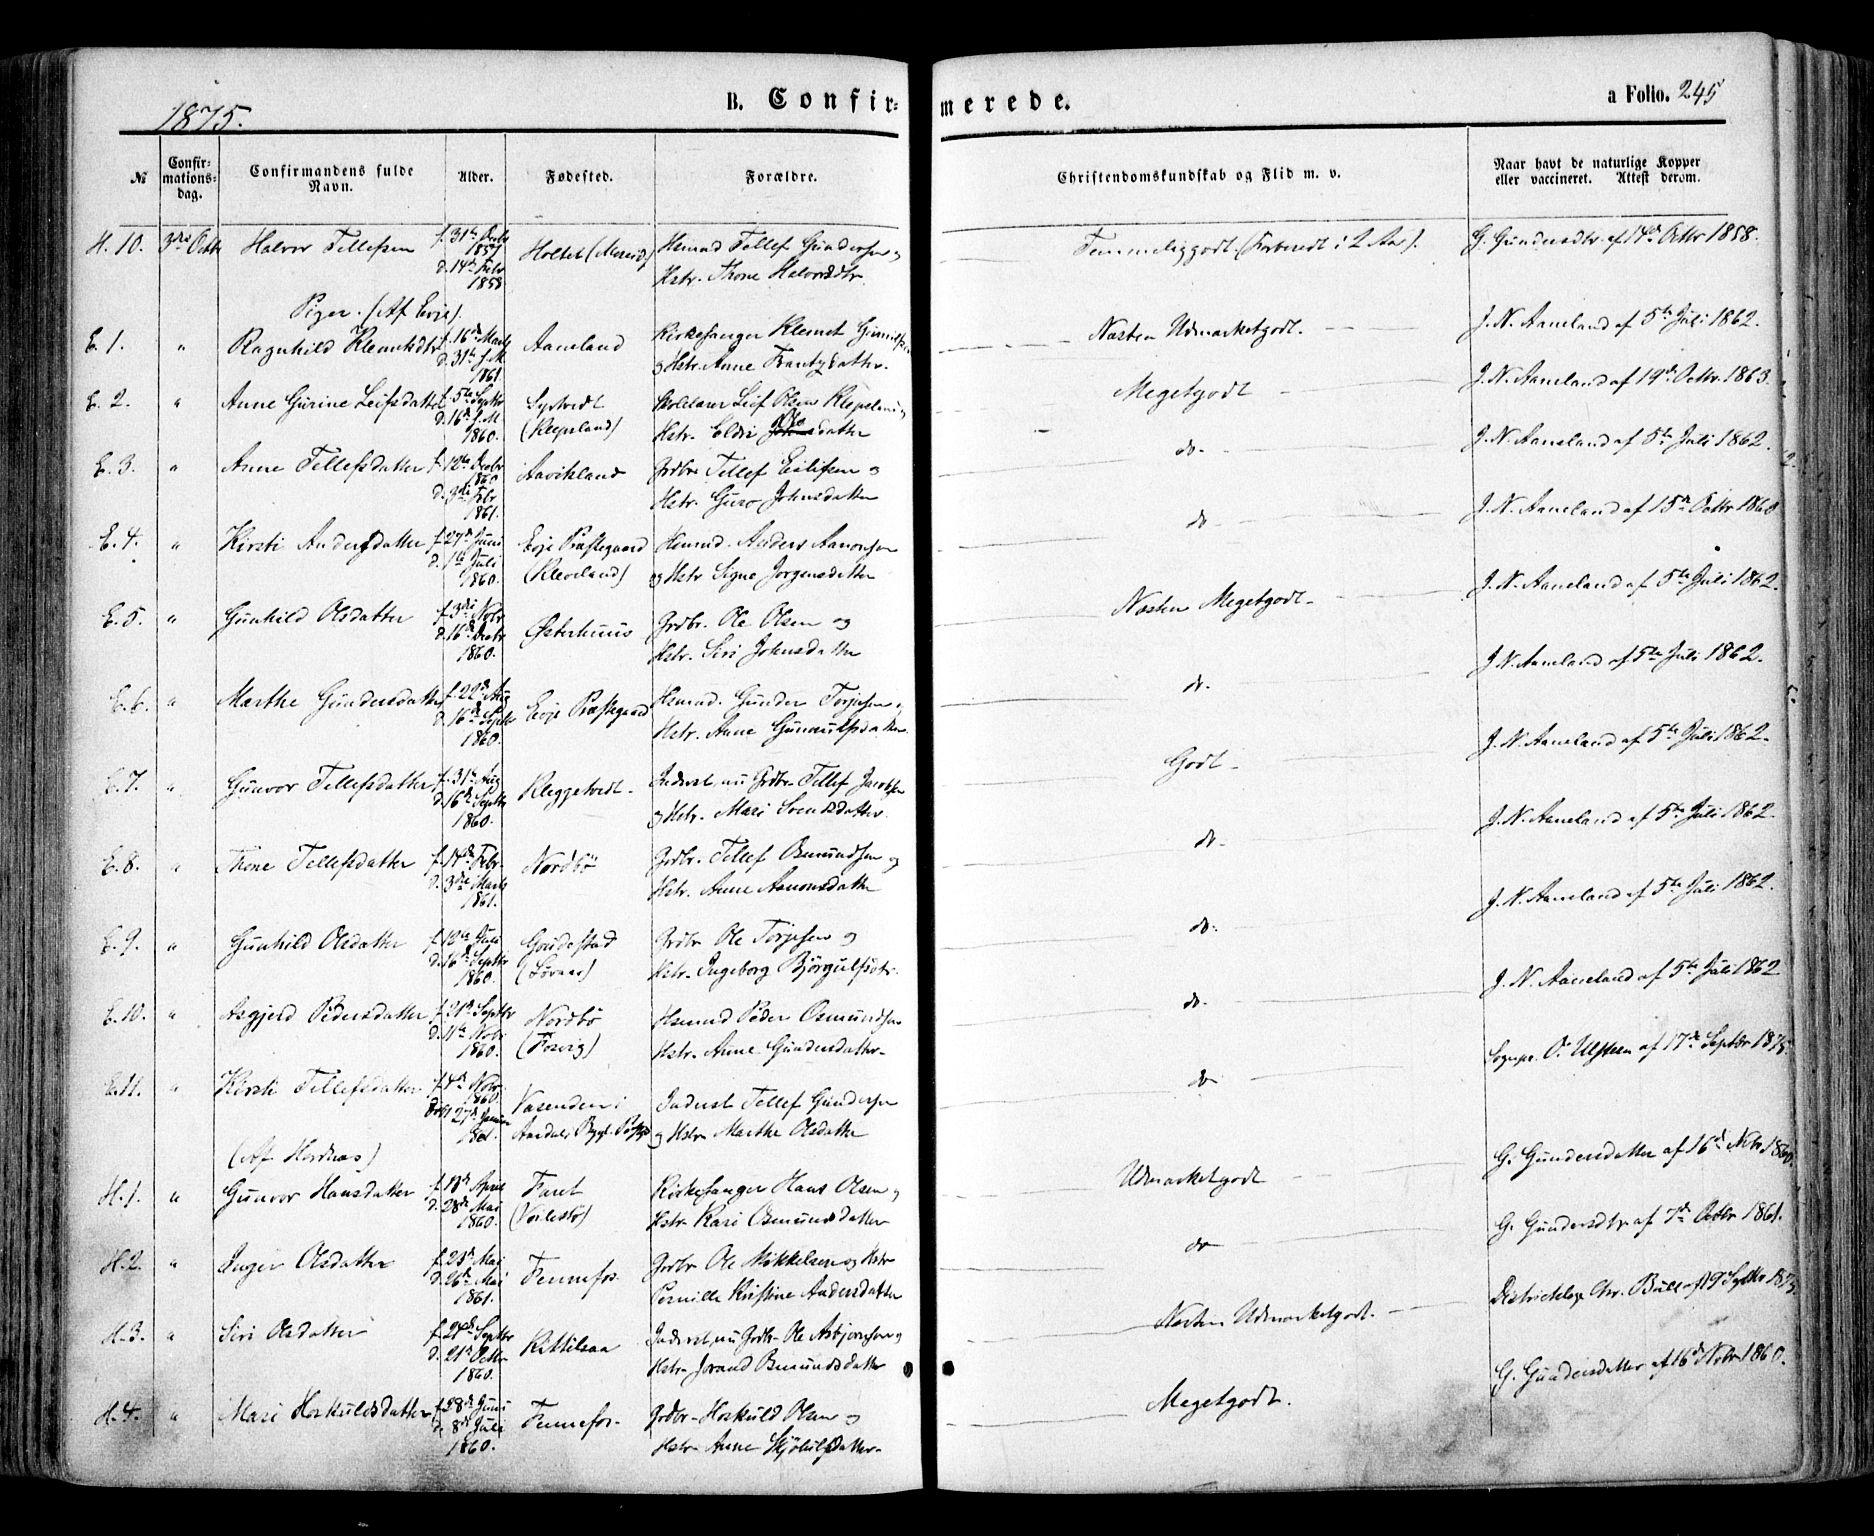 1875.
B. Confirmerede.
a Folio. 245
№
Confirmationsdag.
Confirmandens fulde Navn.
Alder.
Fødested.
Forældre.
Christendomskundskab og Flid m. v.
Naar havt de naturlige Kopper eller vaccineret. Attest derom.
H. 10. 3die Octbr Halvor Tellefsen f. 31te Decbr 1857 d. 14de Febr 1858 Holtet Husmd Tellef Gundersen og Hstr. Thone Halvorsdtr. Temmeliggodt (Forberedt i 2 Aar). G. Gundersdtr. af 14de Octbr 1858.
Piger. (Af Evje).
E. 1. " Ragnhild Klemetsdtr f. 16de Marts d. 31te s. M. 1861 Aaneland Kirkesanger Klemet og Hstr. Anne Frantzdatter. Næsten Udmærketgodt. J. N. Aaneland af 5te Juli 1862.
E. 2. " Anne Gurine Leifsdatter f. 5te Septbr d. 16de s. M 1860. (Klepsland) Skolelærer Leif Olsen Klepsland og Hstr. Eldri Olsdatter Megetgodt J. N. Aaneland af 19de Octbr. 1863.
E. 3. " Anne Tellefsdatter f. 12te Decbr 1860 d. 3die Febr 1861. Aavikland Grdbr. Tellef Eilifsen og Hstr. Guro Johnsdatter do. J. N. Aaneland af 5te Juli 1862.
E. 4. " Kirsti Andersdatter f. 27de Juni d. 1ste Juli 1860. Evje Præstegaard Husmd. Anders Aanonsen og Hstr Signe Jørgensdatter do. J. N. Aaneland af 15de Octbr 1860
E. 5. " Gunhild Olsdatter f. 3die Novbr d. 16de Decbr 1860. Østerhuus Grdbr. Ole Olsen og Hstr. Siri Johnsdatter Næsten Megetgodt. J. N. Aaneland af 5te Juli 1862.
E. 6. " Marthe Gundersdatter f. 22de Aug d. 16de Septbr 1860. Evje Præstegaard Husmd. Gunder Torjusen og Hstr. Anne Gunnulfsdatter. do. J. N. Aaneland af 5te Juli 1862.
E. 7. " Gunvor Tellefsdatter f. 31te Aug d. 16de Septbr 1860. Kleggetvedt. Inderst, nu Grdbr. Tellef Jacobsen og Hstr. Mari Svendsdatter. Godt. J. N. Aaneland af 5te Juli 1862.
E. 8. " Thone Tellefsdatter f. 14de Febr. d. 3die Marts 1861. Nordbø Grdbr. Tellef Osmundsen og Hstr. Anne Aanonsdatter do. J. N. Aaneland af 5te Juli 1862.
E. 9. " Gunhild Olsdatter f. 12te Juli d. 16de Septbr 1860. Gaudestad Grdbr Ole Torjusen og Hstr. Ingeborg Bjørgulfsdtr. do. J. N. Aaneland af 5te Juli 1862.
E. 10. " Asgjerd Pedersdatter f. 21de Septbr d. 11te Novbr 1860. Nordbø Husmd Peder Osmundsen Hstr. Anne Gundersdatter. do. J. N. Aaneland af 5te Juli 1862
E. 11. " Kirsti Tellefsdatter. f. 4de Novbr 1860 27de Januar 1861. Vasenden i Inderst Tellef Gundersen og Hstr Marthe Olsdatter do Sognepr. O. Ulstein af 17de Septbr 1875.
(Af Hordnæs)
H. 1. " Gunvor Hansdatter f. 18de April d. 28de Mai 1860. Faret Kirkesanger Hans Olsen og Hstr Kari Osmundsdatter Udmærketgodt G. Gundersdatter af 16de Novbr 1860.
H. 2. " Inger Olsdatter f. 23de Mai d. 26de Mai 1861. Fennefos. Grdbr Ole Mikkelsen og Hstr Pernille Kristine Andersdatter do G. Gundersdtr. af 7de Octbr 1861.
H. 3. " Siri Olsdatter f. 24de Septbr d. 21de Octbr 1860. Kittilsaa Inderst, nu Grdbr. Ole Asbjørnsen og Hstr. Jorand Osmundsdatter Næsten Udmærketgodt. Districtslæge Chr. Bull af 19 Septbr
H. 4. " Mari Hoskuldsdatter f. 28de Juni d. 8de Juli 1860. Fennefos. Grdbr. Hoskuld Olsen og Hstr. Anne Megetgodt. G. Gundersdatter af 16de Novbr 1860.